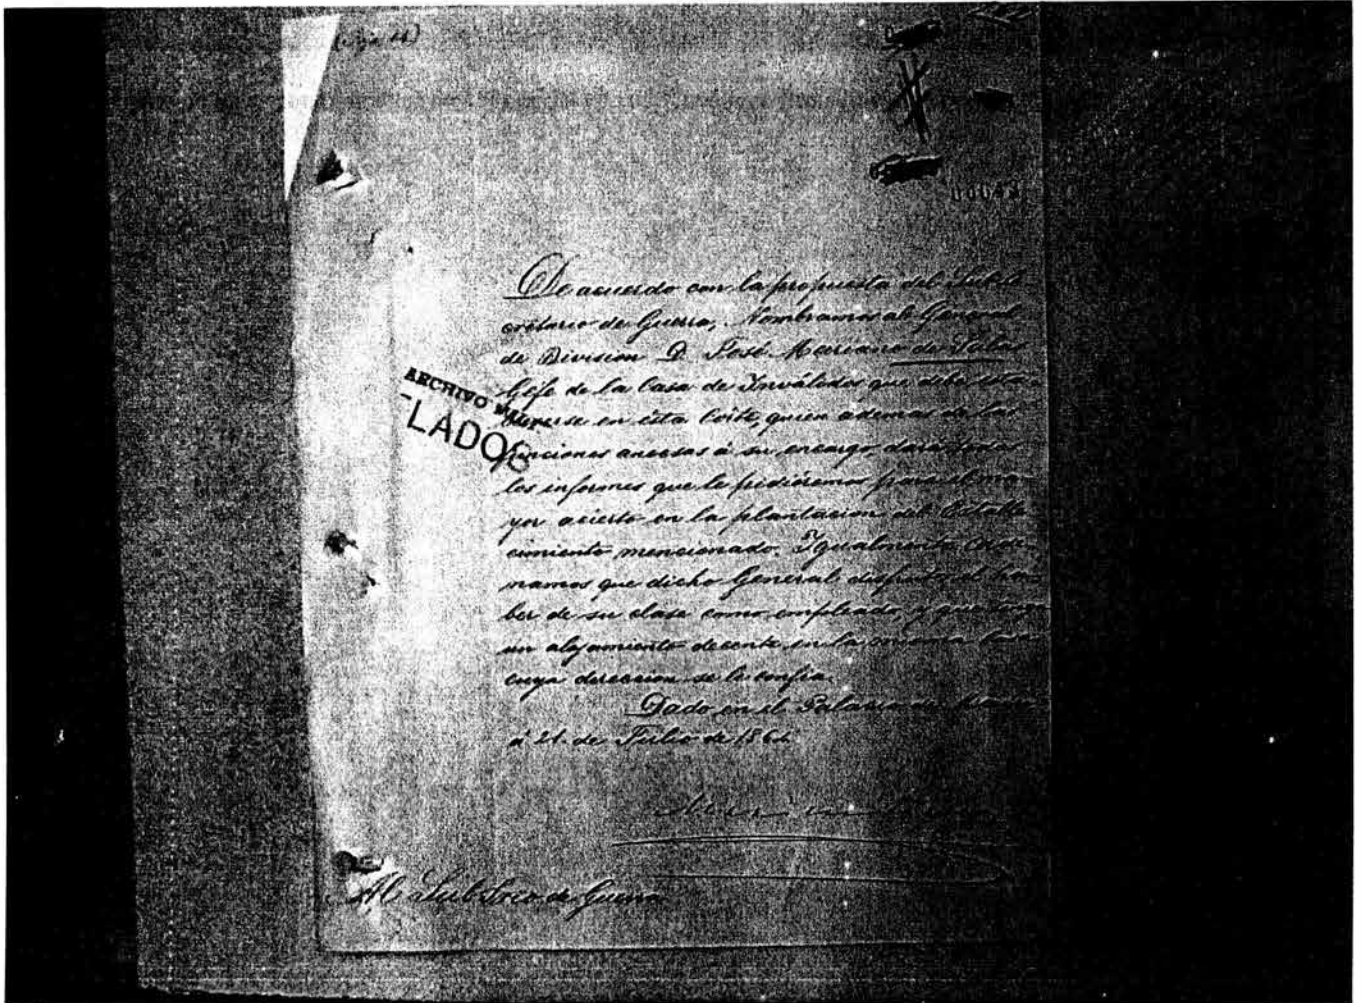 De acuerdo con la propuesta del Subse
cretario de Guerra, Nombramos al General
de Division D. José Mariano de Salas
Gefe de la Casa de Inválidos que debe esta
blecerse en esta Corte, quien ademas de las
funciones anecsas á su encargo, dará todos
los informes que le pidiéremos para el ma
yor acierto en la plantacion del Estable
cimiento mencionado. Igualmente
namos que dicho General disfrute el ha
ber de su clase como empleado, y que tenga
un alojamiento decente en la misma Casa
cuya direccion se le confia.
Dado en el Palacio de
á 21 de Julio de 1864
Al Sub Srio de Guerra
ARCHIVO
LADOS